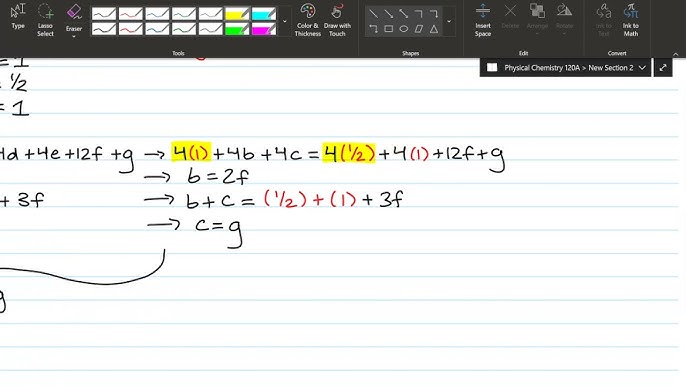 Type
Lasso Select
Eraser
Color & Thickness
Draw with Touch
Insert Space
Delete
Rotate
Ink to Text
Ink to Math
Tools
Shapes
Edit
Convert
Physical Chemistry 120A > New Section 2
= 1
= 1/2
= 1
4d+4e+12f+g → 4(1)+4b+4c = 4(1/2)+4(1)+12f+g
→ b=2f
+ 3f → b+c = (1/2)+(1)+3f
→ c=g
g